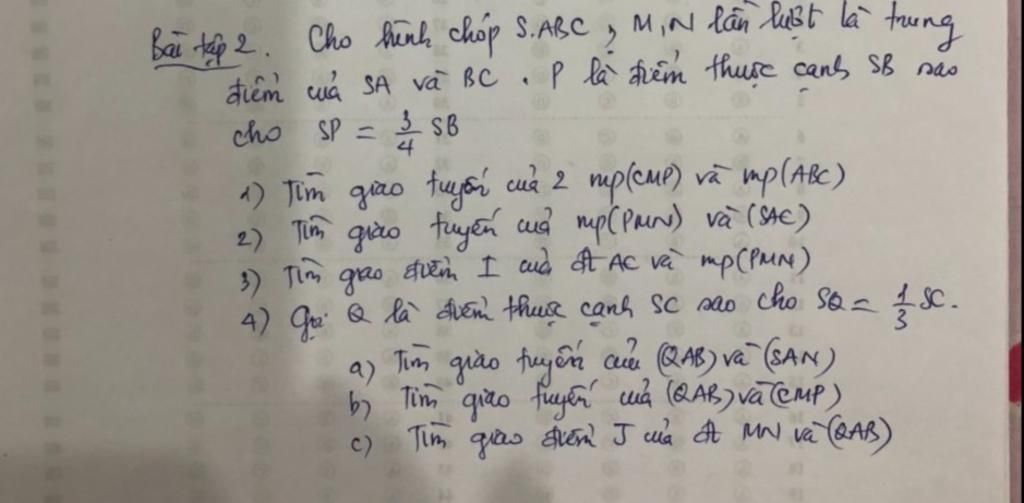 Bài tập 2. Cho hình chóp S.ABC, M,N lần lượt là trung
điểm của SA và BC. P là điểm thuộc cạnh SB sao
cho SP = 3/4 SB
1) Tìm giao tuyến của 2 mp(CMP) và mp(ABC)
2) Tìm giao tuyến của mp(PMN) và (SAC)
3) Tìm giao điểm I của đt AC và mp(PMN)
4) Gọi Q là điểm thuộc cạnh SC sao cho SQ = 1/3 SC.
a) Tìm giao tuyến của (QAB) và (SAN)
b) Tìm giao tuyến của (QAB) và (CMP)
c) Tìm giao điểm J của đt MN và (QAB)